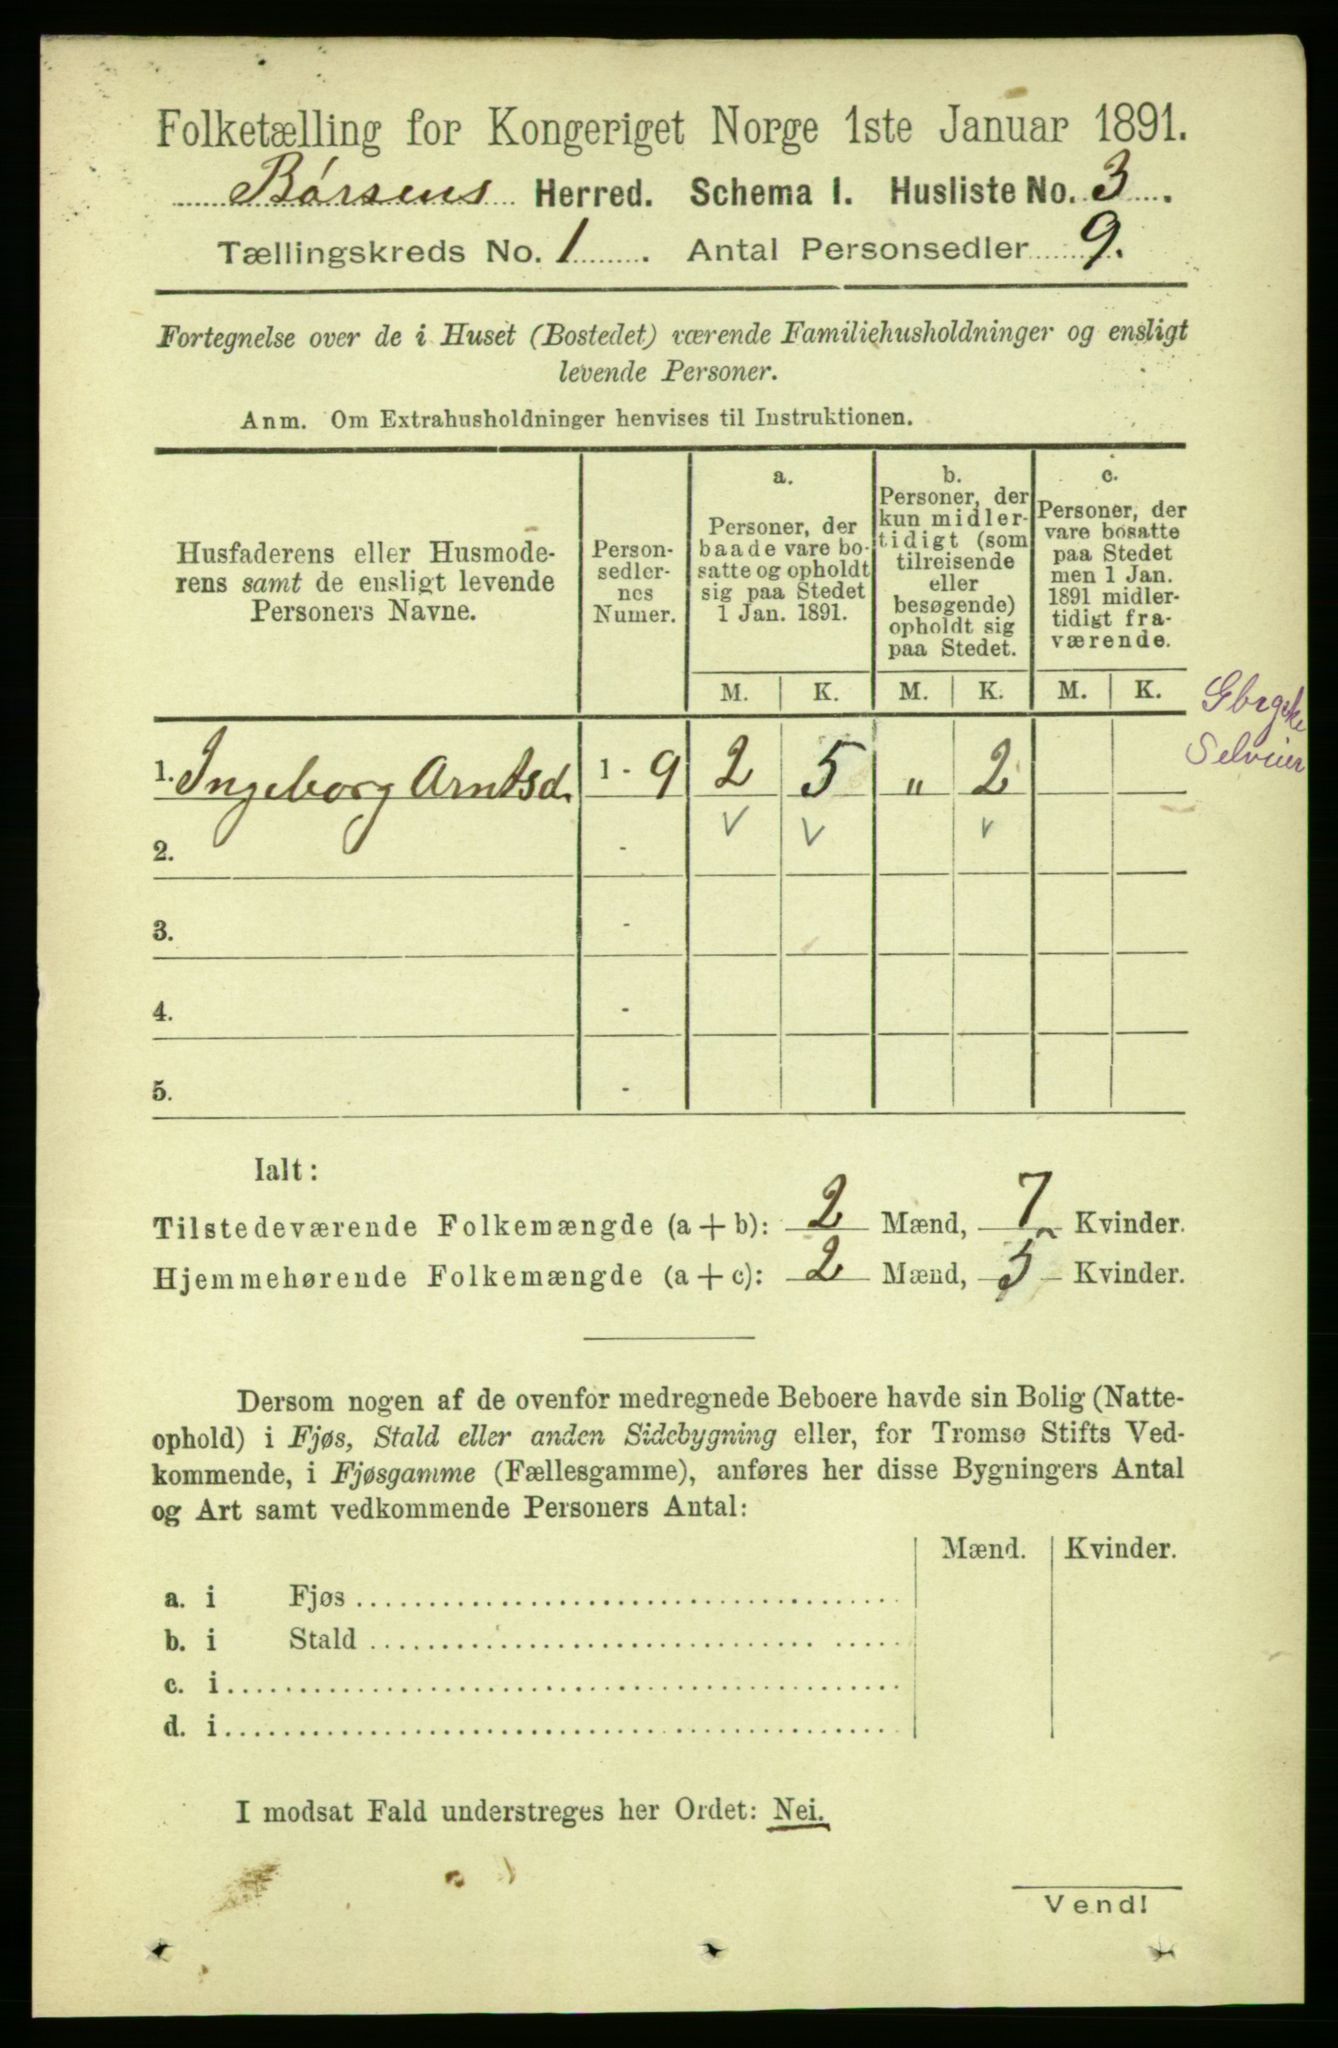 Folketælling for Kongeriget Norge 1ste Januar 1891.
Børsens Herred. Schema 1. Husliste No. 3.
Tællingskreds No. 1. Antal Personsedler 9.
Fortegnelse over de i Huset (Bostedet) værende Familiehusholdninger og ensligt
levende Personer.
Anm. Om Extrahusholdninger henvises til Instruktionen.
Husfaderens eller Husmode-
rens samt de ensligt levende
Personers Navne.
Person-
sedler-
nes
Numer.
a.
Personer, der
baade vare bo-
satte og opholdt
sig paa Stedet
1 Jan. 1891.
b.
Personer, der
kun midler-
tidigt (som
tilreisende
eller
besøgende)
opholdt sig
paa Stedet.
c.
Personer, der
vare bosatte
paa Stedet
men 1 Jan.
1891 midler-
tidigt fra-
værende.
M. K. M. K. M. K.
1. Ingeborg Arntsd. 1 - 9 2 5 " 2
2. -
3. -
4. -
5. -
Ialt:
Tilstedeværende Folkemængde (a + b): 2 Mænd, 7 Kvinder.
Hjemmehørende Folkemængde (a + c): 2 Mænd, 5 Kvinder.
Dersom nogen af de ovenfor medregnede Beboere havde sin Bolig (Natte-
ophold) i Fjøs, Stald eller anden Sidebygning eller, for Tromsø Stifts Ved-
kommende, i Fjøsgamme (Fællesgamme), anføres her disse Bygningers Antal
og Art samt vedkommende Personers Antal:
Mænd. Kvinder.
a. i Fjøs
b. i Stald
c. i
d. i
I modsat Fald understreges her Ordet: Nei.
Vend!